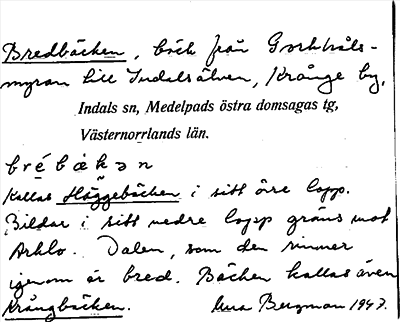 Bredbäcken, bäck från Gorkhåls-
myran till Indalsälven, Krånge by,
Indals sn, Medelpads östra domsagas tg,
Västernorrlands län.
brébäkən
Kallas Häggebäcken i sitt övre lopp.
Bildar i sitt nedre lopp gräns mot
Arklo. Dalen, som den rinner
igenom är bred. Bäcken kallas även
Krångbäcken. Bergman 1947.